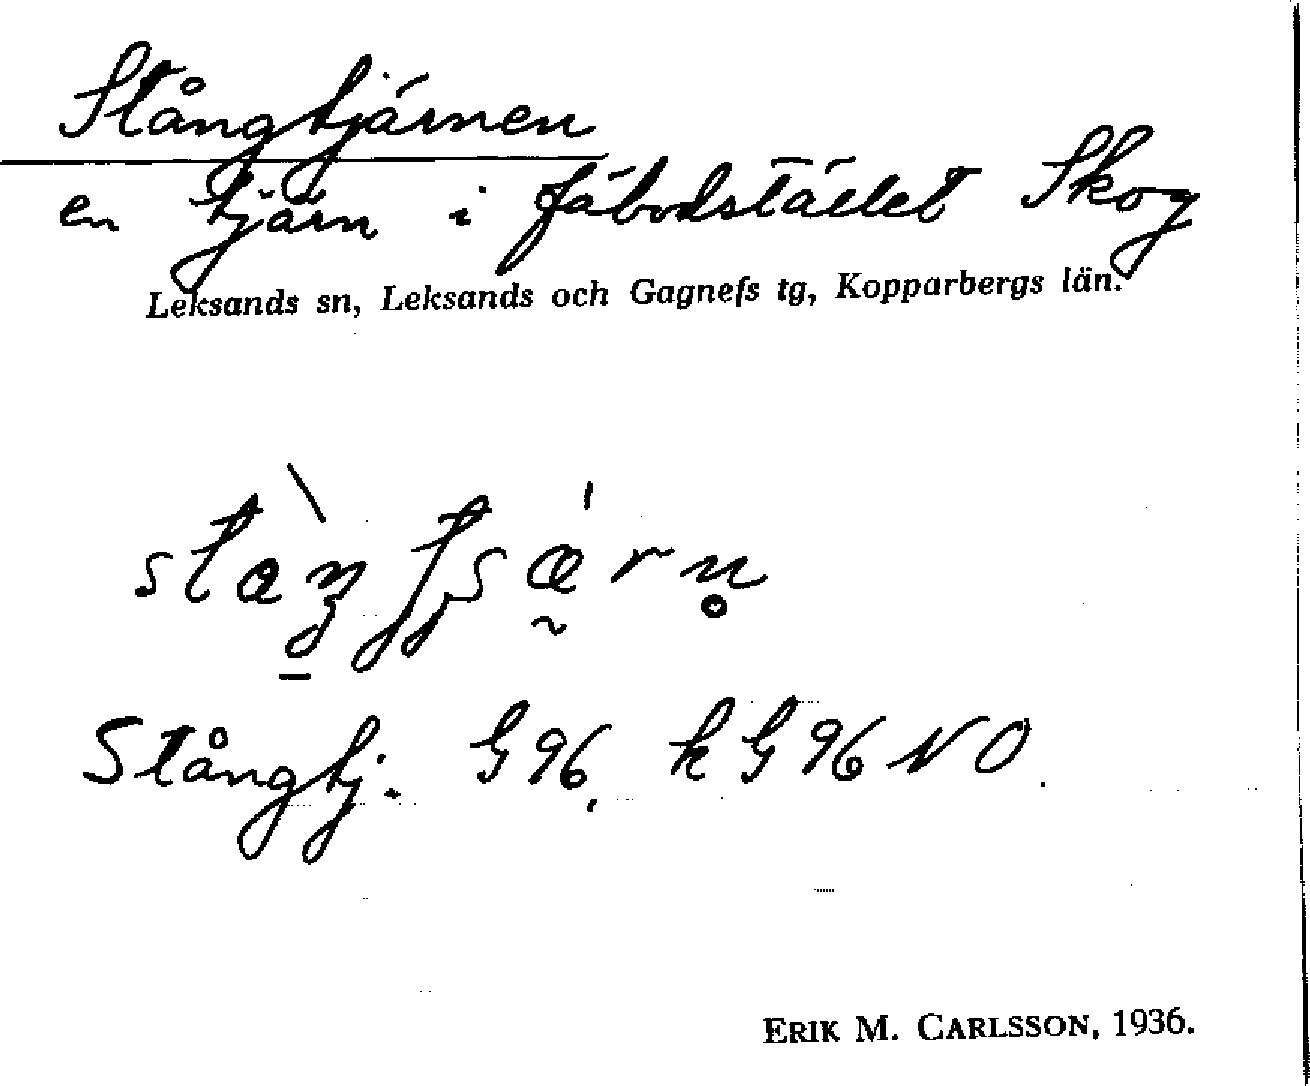 Stångtjärnen
en tjärn i fäbodstället Skog
Leksands sn, Leksands och Gagnefs tg, Kopparbergs län.
Stångtj. G 96, k G 96 NO.
ERIK M. CARLSSON, 1936.